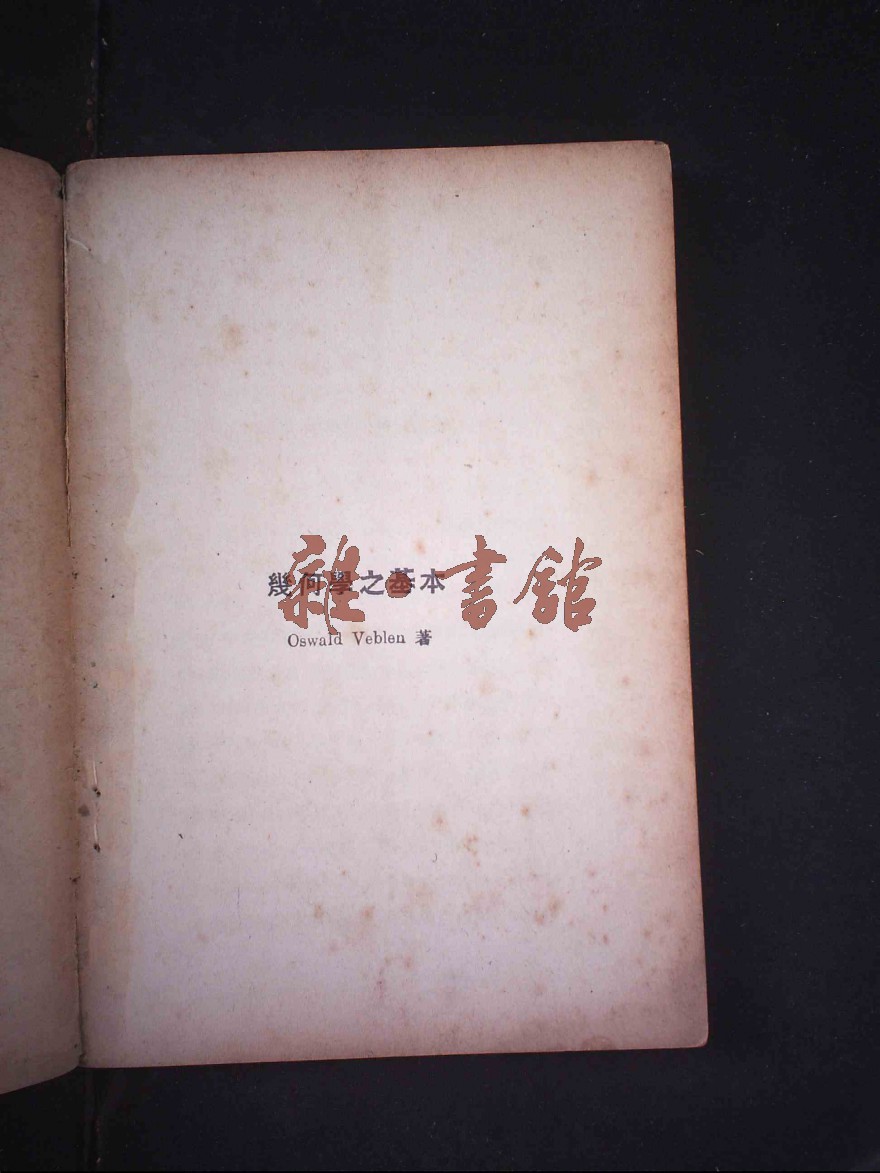 幾何學之基本
Oswald Veblen 著
雜·書館